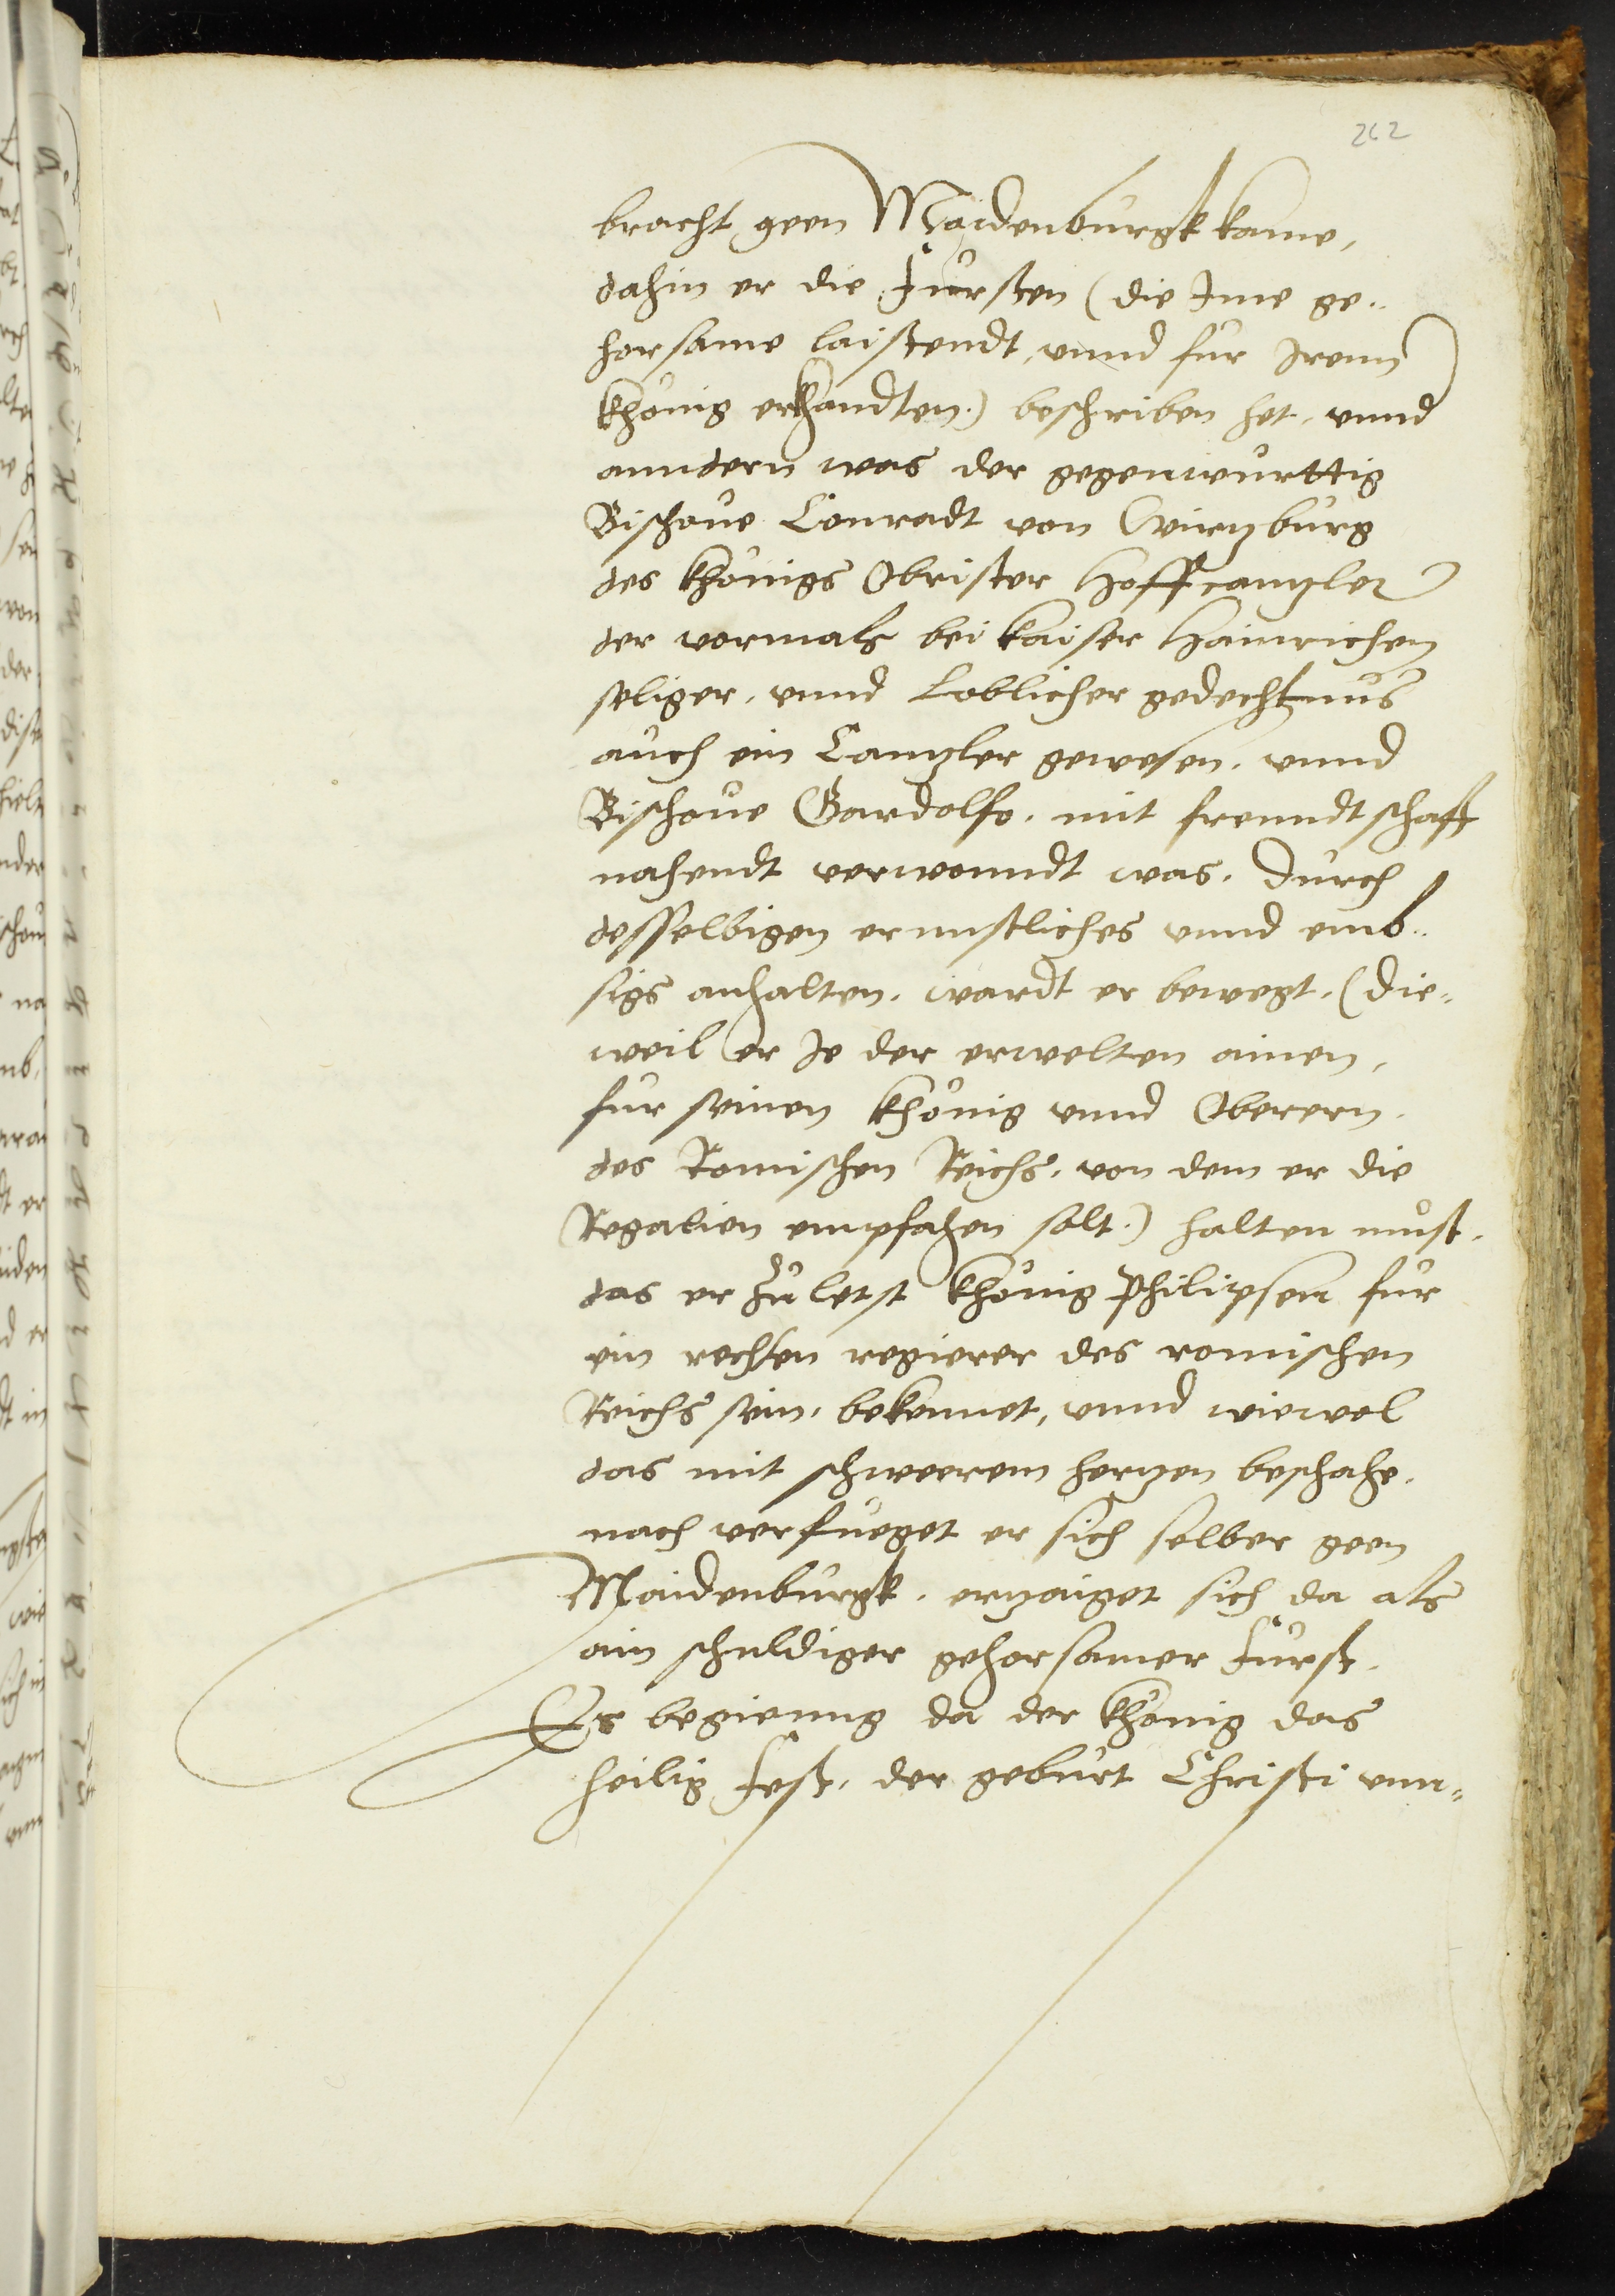 262
bracht geen Maidenburgk kame,
dahin er die Fursten (die Ime ge¬
horsame laistendt, vnnd fur Irenn
khönig erkhandten.) beschriben het, vnnd
anndern was der gegenwurttig
Bischoue Conradt von Wirtzburg
des khönigs Obrister Hoffcantzler
der vormals bei kaiser Hainrichen
seliger, vnnd Loblicher gedechtnus
auch ein Cantzler gewesen, vnnd
Bischoue Gardolfo, mit freundtschafft
nahendt verwanndt was, durch
desselbigen ernnstliches vnnd emb¬
sigs anhalten, wardt er bewegt, (die¬
weil er Je der erwelten ainen,
fur seinen khönig vnnd Oberern
des Romischen Reichs, von dem er die
Regalien empfahen solt.) halten must,
das er zu letst khönig Philipsen fur
ein rechten regierer des romischen
Reichs sein, bekennet, vnnd wiewol
das mit schweerem hertzen beschahe,
noch verfueget er sich selber geen
Maidenburgk, ertzaiget sich da als
ain schuldiger gehorsamer Furst,
Es begienng da der khönig das
heilig Fest, der geburt Christi vnn¬